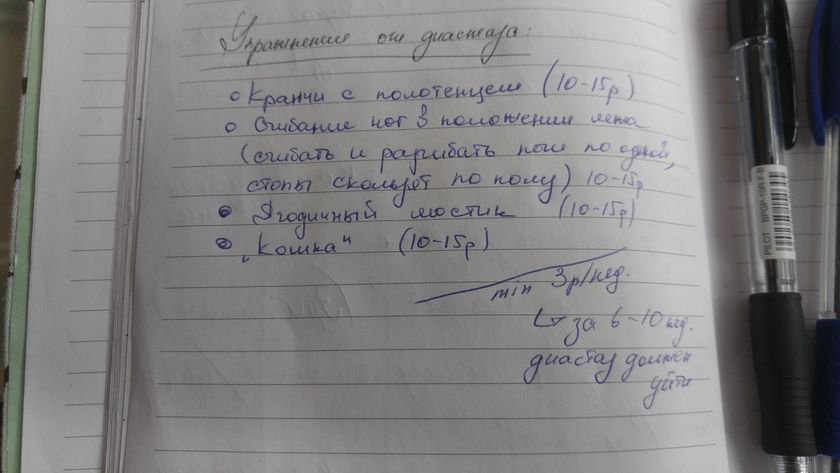 Упражнения от диастаза:
Кранчи с полотенцем (10-15р)
Сгибание ног в положении лежа
(сгибать и разгибать ноги по одной,
стопы скользят по полу) 10-15р
Ягодичный мостик (10-15р)
"Кошка" (10-15р)
min 3р/нед.
↳ за 6-10 нед.
диастаз должен
уйти
PILOT BPGP-10R-F-B